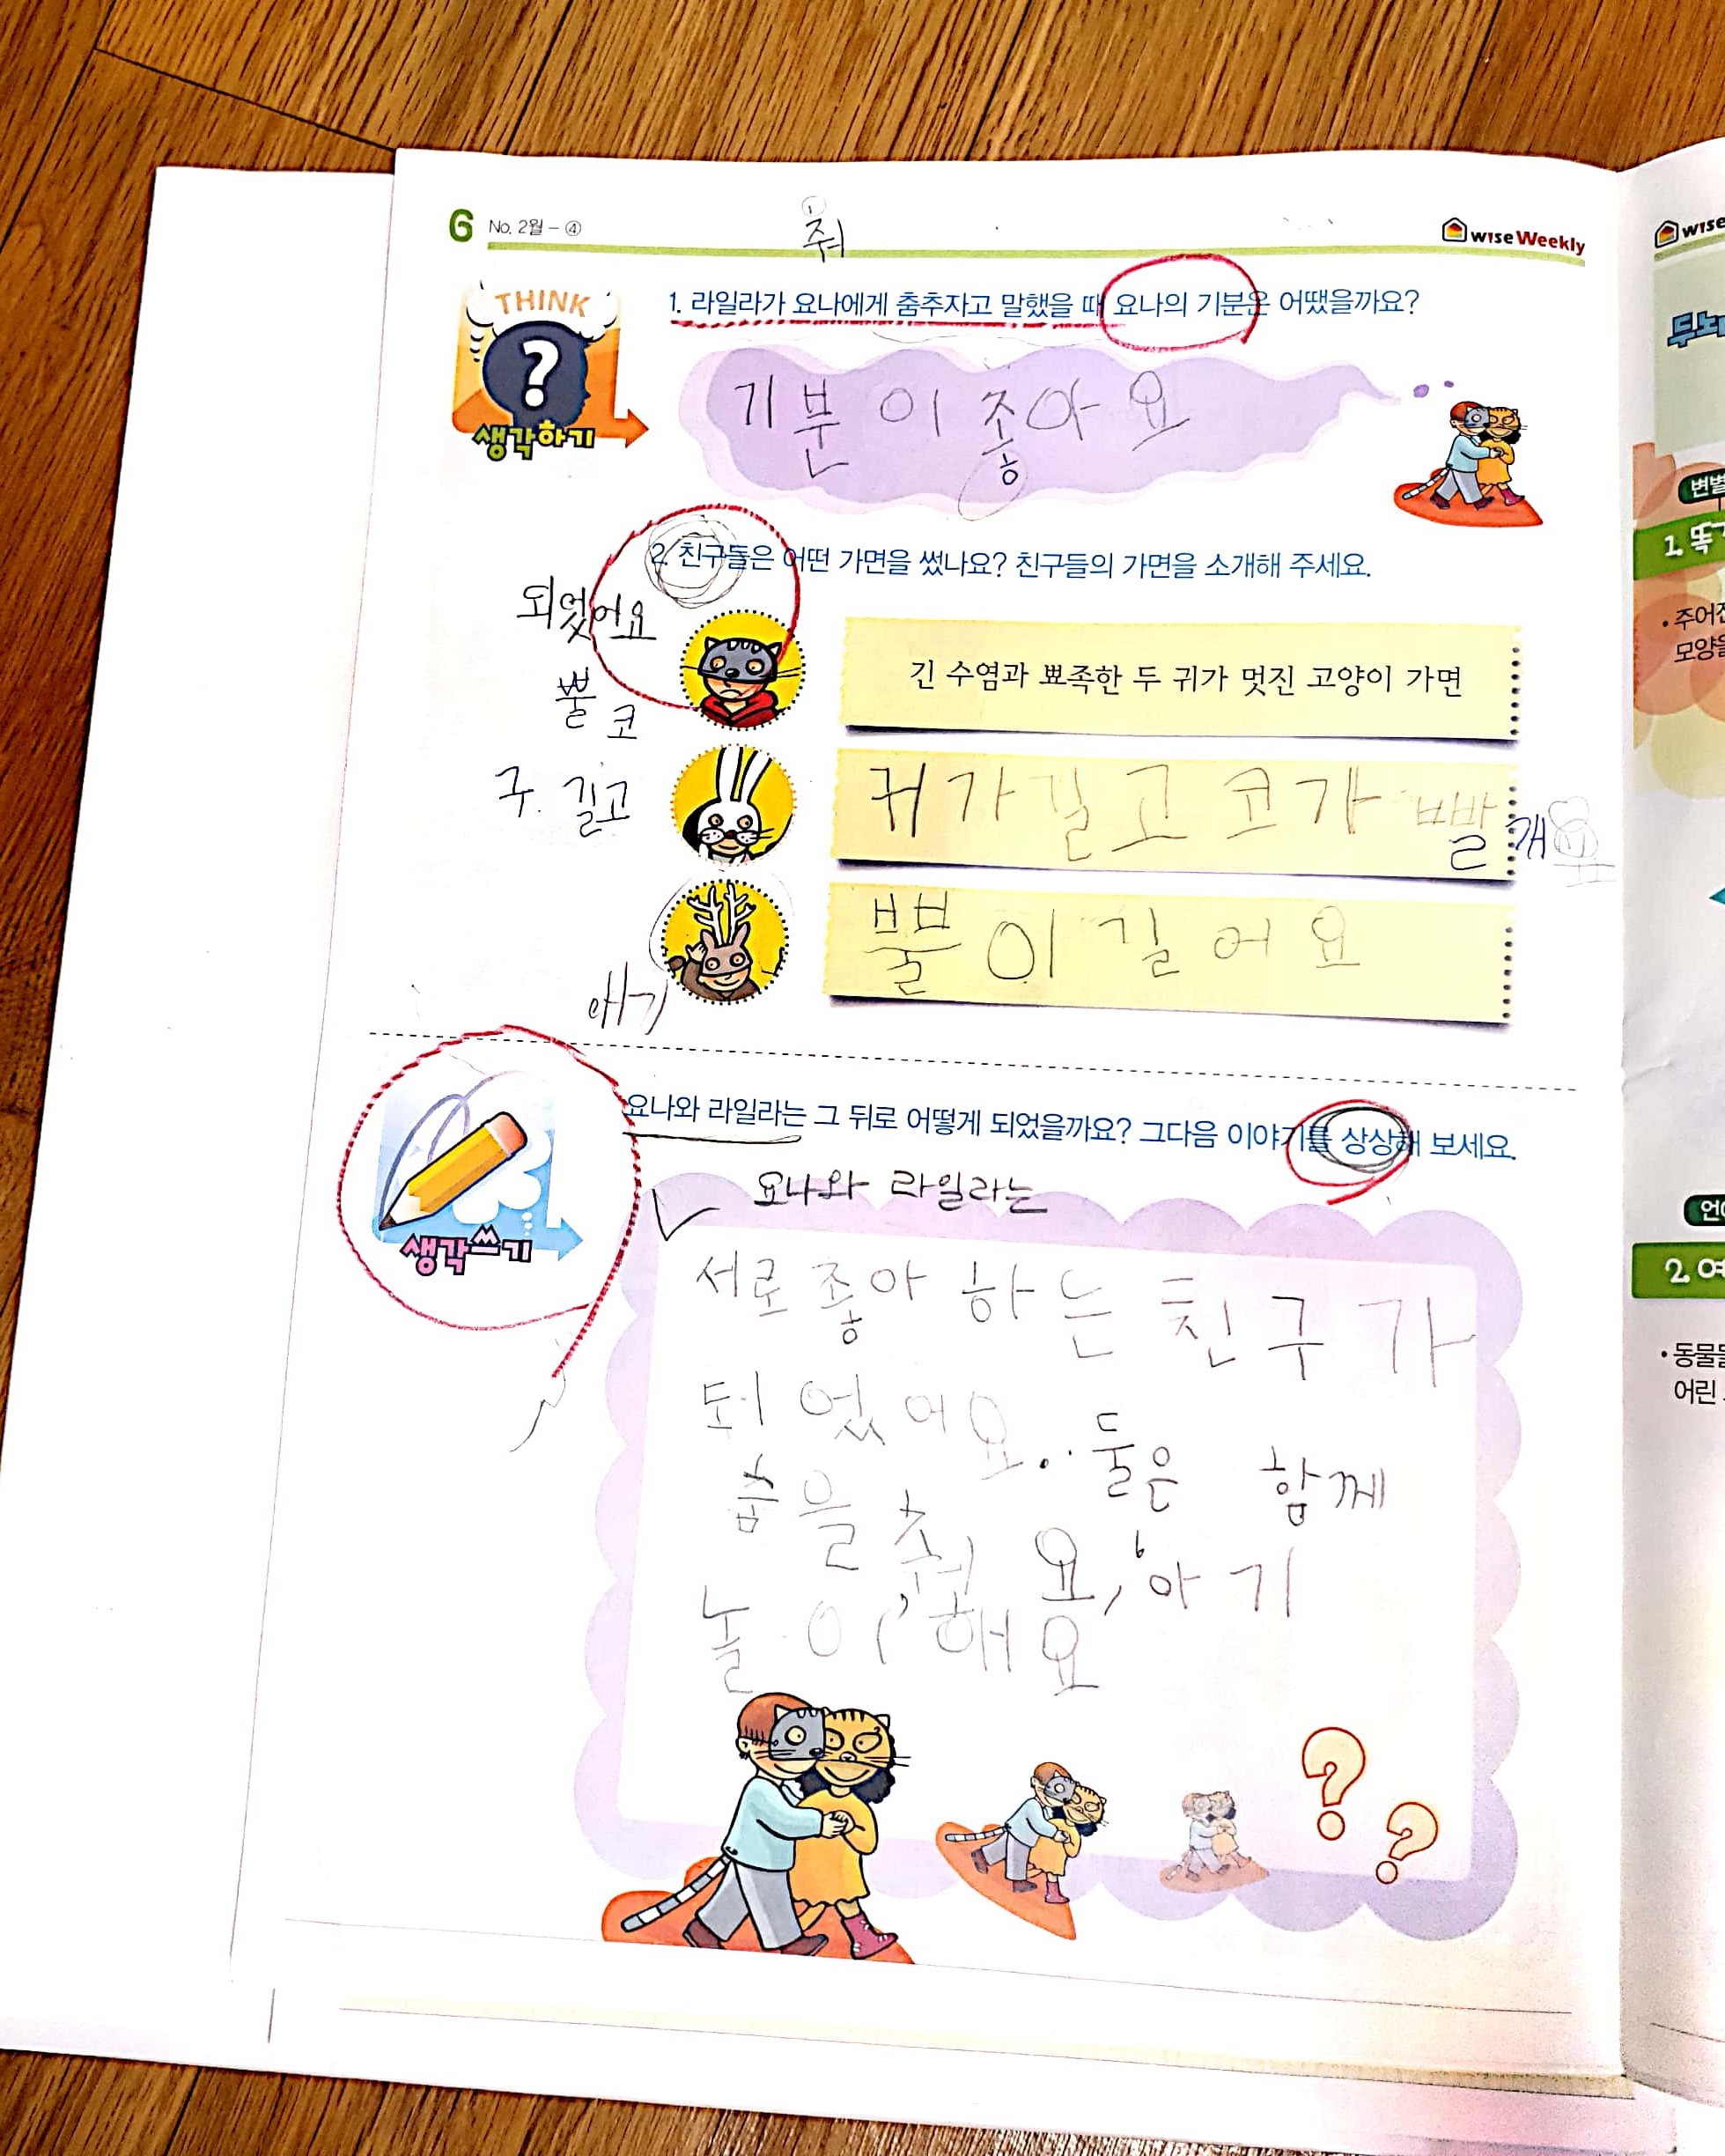 6 No. 2월 - ④
춰
wiseWeekly
wise
THINK
?
생각하기
1. 라일라가 요나에게 춤추자고 말했을 때 요나의 기분은 어땠을까요?
기분이 좋아요
2. 친구들은 어떤 가면을 썼나요? 친구들의 가면을 소개해 주세요.
되었어요
긴 수염과 뾰족한 두 귀가 멋진 고양이 가면
뿔 코
구. 길고
귀가길고 코가 빨개요
뿔이 길어요
애기
생각쓰기
요나와 라일라는 그 뒤로 어떻게 되었을까요? 그다음 이야기를 상상해 보세요.
요나와 라일라는
서로 좋아 하는 친구가
되었어요. 둘은 함께
춤을 춰요, 아기
놀이 해요
? ?
변별
1. 똑
• 주어진
모양을
언어
2. 여
• 동물들
어린